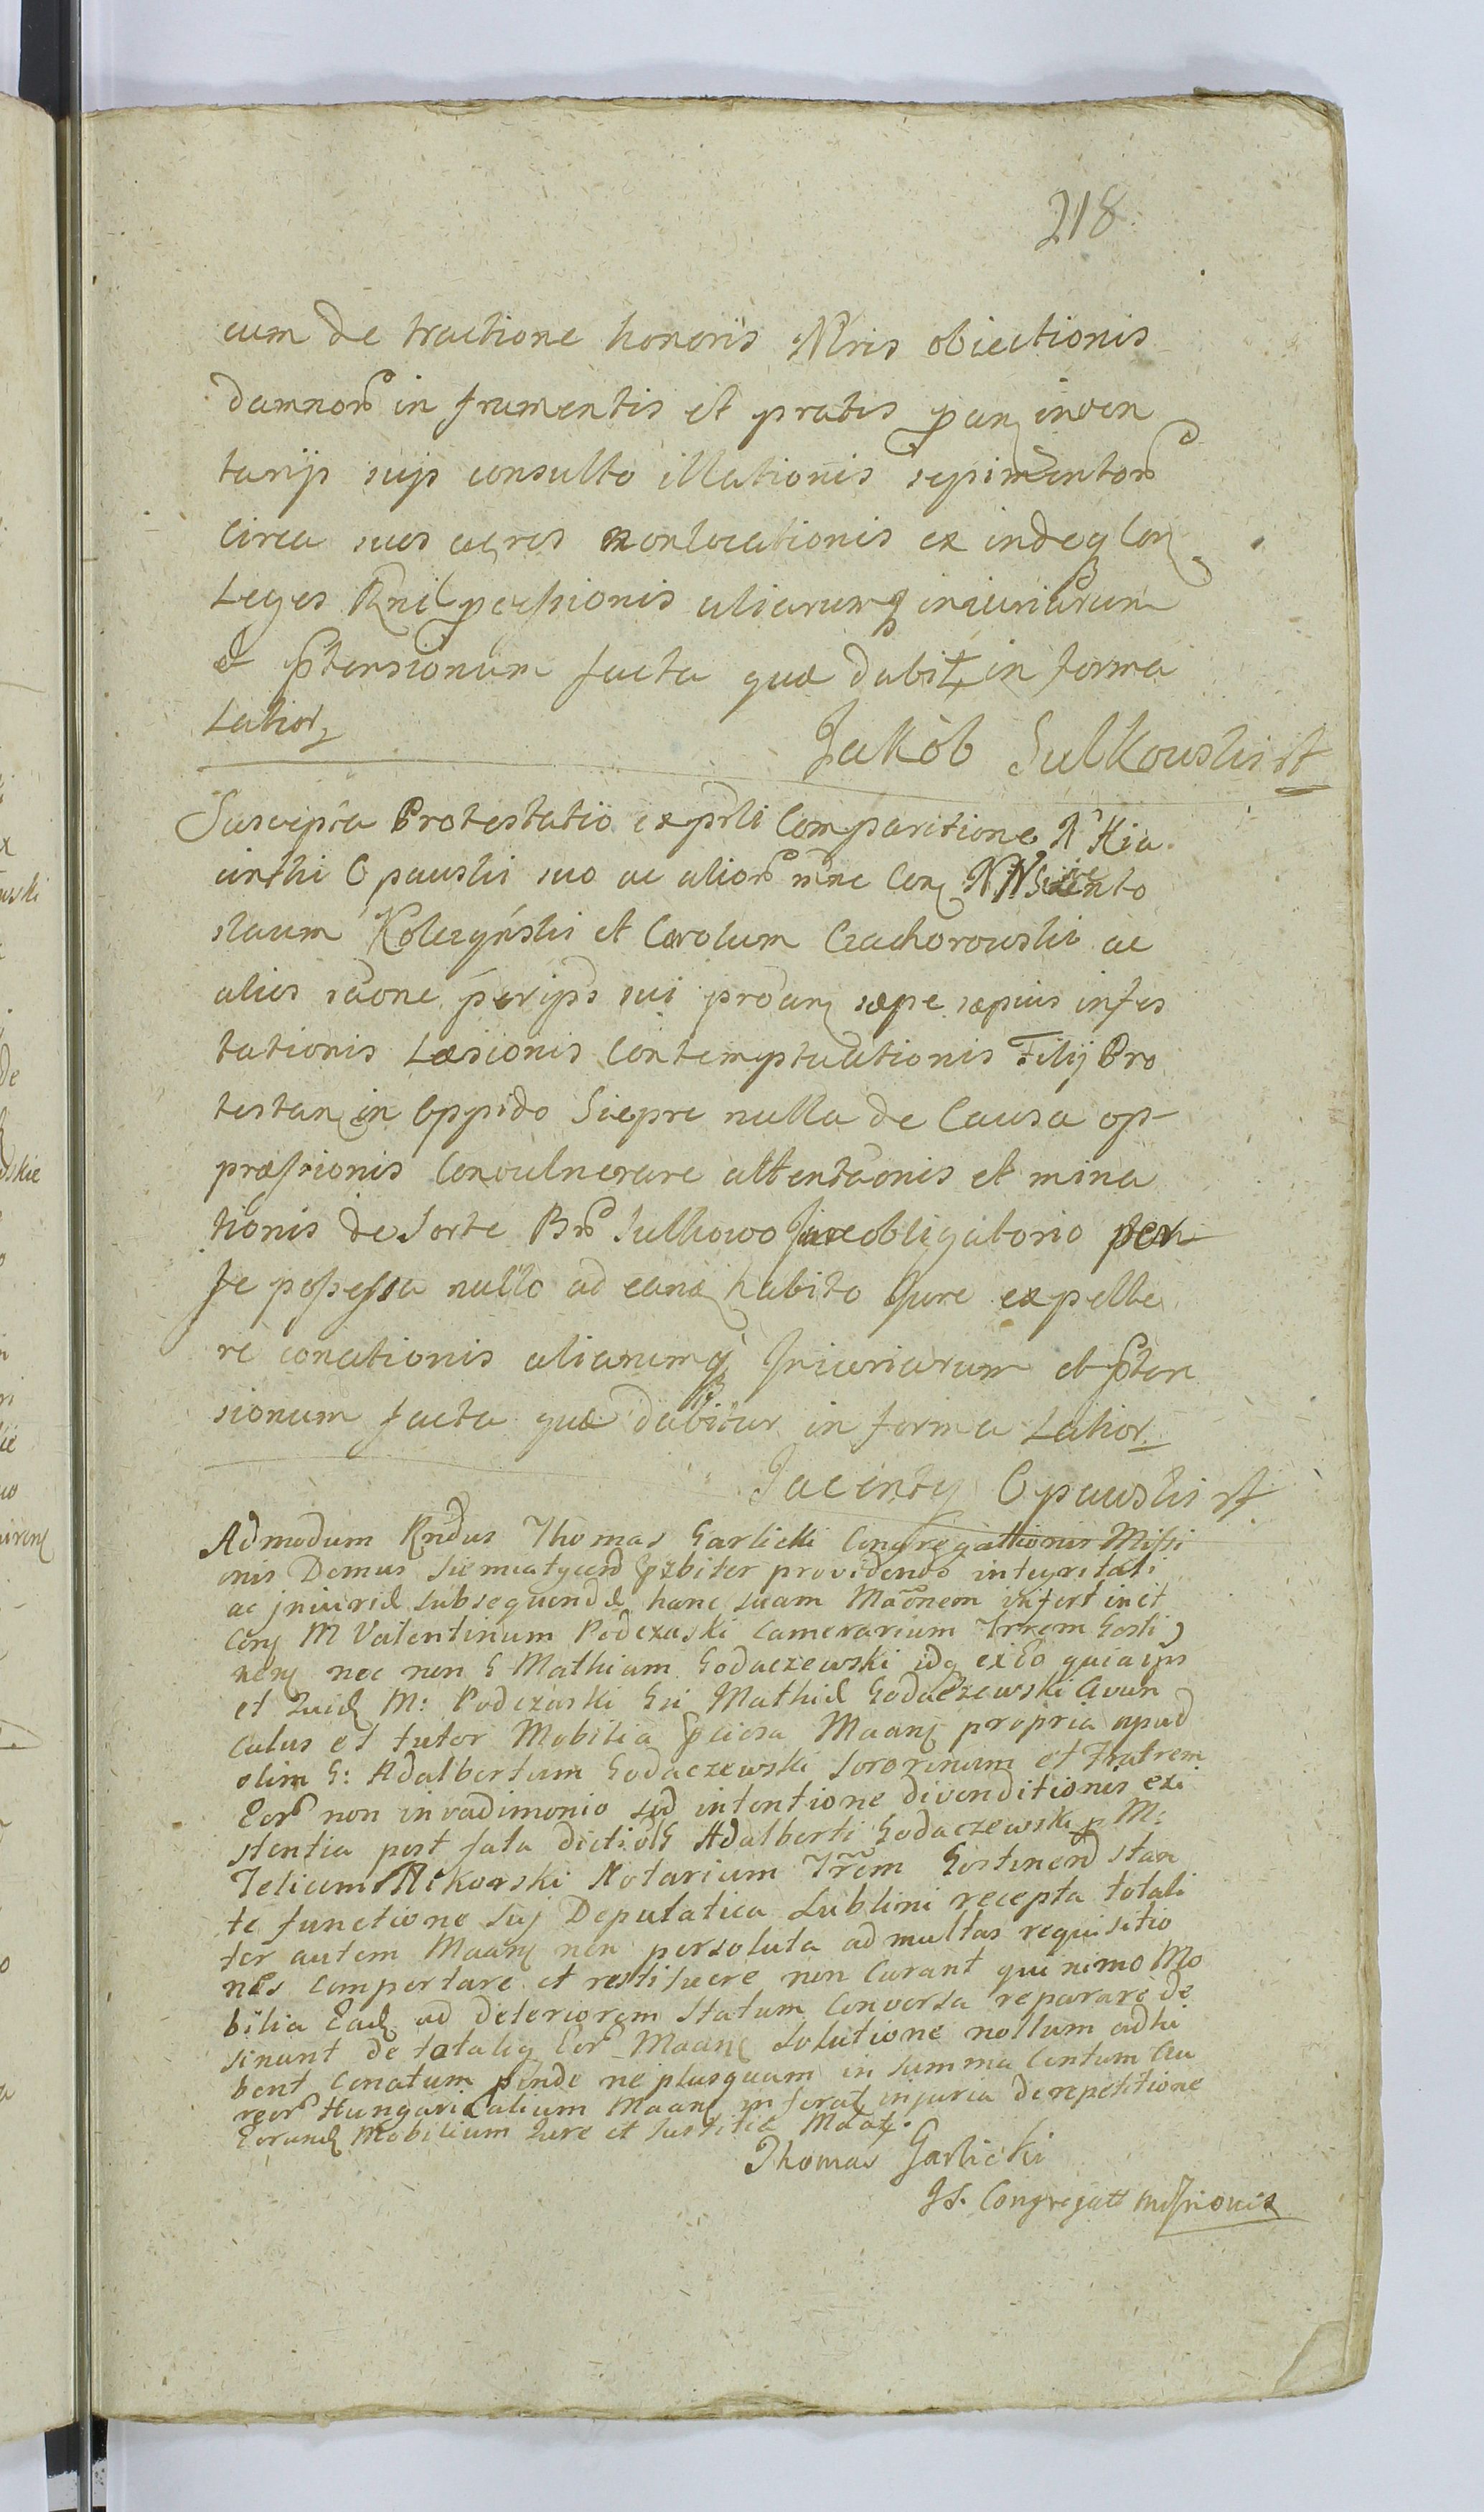 218
cum de tractione honoris Nris obiectionis
damnor in frumentis et pratis per inven
tarijs suis consulto illationis sepimentor
circa suos agros non locationis ex indeq Con
Leges Rni passionis aliarumq iniuriarum
et ptensionum facta quæ dabit in forma
Latior
Jakób Sulkowski
Suscepta Protestatio ex psli Comparitione N Hia
cinthi Opawski suo ac alior nne Con NN
slaum Kolczyński et Carolum Czachorowski ac
alios raone per ips sui proan sæpe sæpius infes
tationis Læsionis Contemptuationis Filij Pro
testan in Oppido Siepre nulla de Causa op
præssionis Convulnerare attentaonis et mina
tionis de Sorte Bnr Sulkowo Jure obligatorio per
se possessa nullo ad eand habito Jure expelle
re conationis aliarumq Iniuriarum et pten
sionum facta quæ dabitur in forma Latior
Jacinty Opawski
Admodum Rndus Thomas Garlicki Congregationis Missi
onis Domus Siemiatycen Pzbiter providendo integritati
ac iniuriæ subsequendæ hanc suam Maōnem infert in et
Con M Valentinum Podczaski Camerarium Trrem Gosti
nen nec non G Mathiam Godaczewski idq ex Eo quia ips
et quid M: Podczaski Gsi Mathiæ Godaczewski Avun
culus et tutor Mobilia pciosa Maan propria apud
olim G: Adalbertum Godaczewski Sororinum et Fratrem
Eor non in vadimonio sed intentione divenditionis exi
stentia post fata dicti olim G Adalberti Godaczewski p M:
Felicem Mikorski Notarium Trrem Gostinen stan
te functione suj Deputatica Lublini recepta totali
ter autem Maan non persoluta ad multas requisitio
nes comportare et restituere non curant quinimo Mo
bilia Ead ad deteriorem statum conversa reparare de
sinunt de totaliq Eor Maan solutione nullum adhi
bent conatum proinde ne plusquam in summa Centum Au
reor Hungaricalium Maan inferat injuria de repetitione
Eorund Mobilium Jure et Justitia Maat.
Thomas Garlicki
Congregatt Missionis